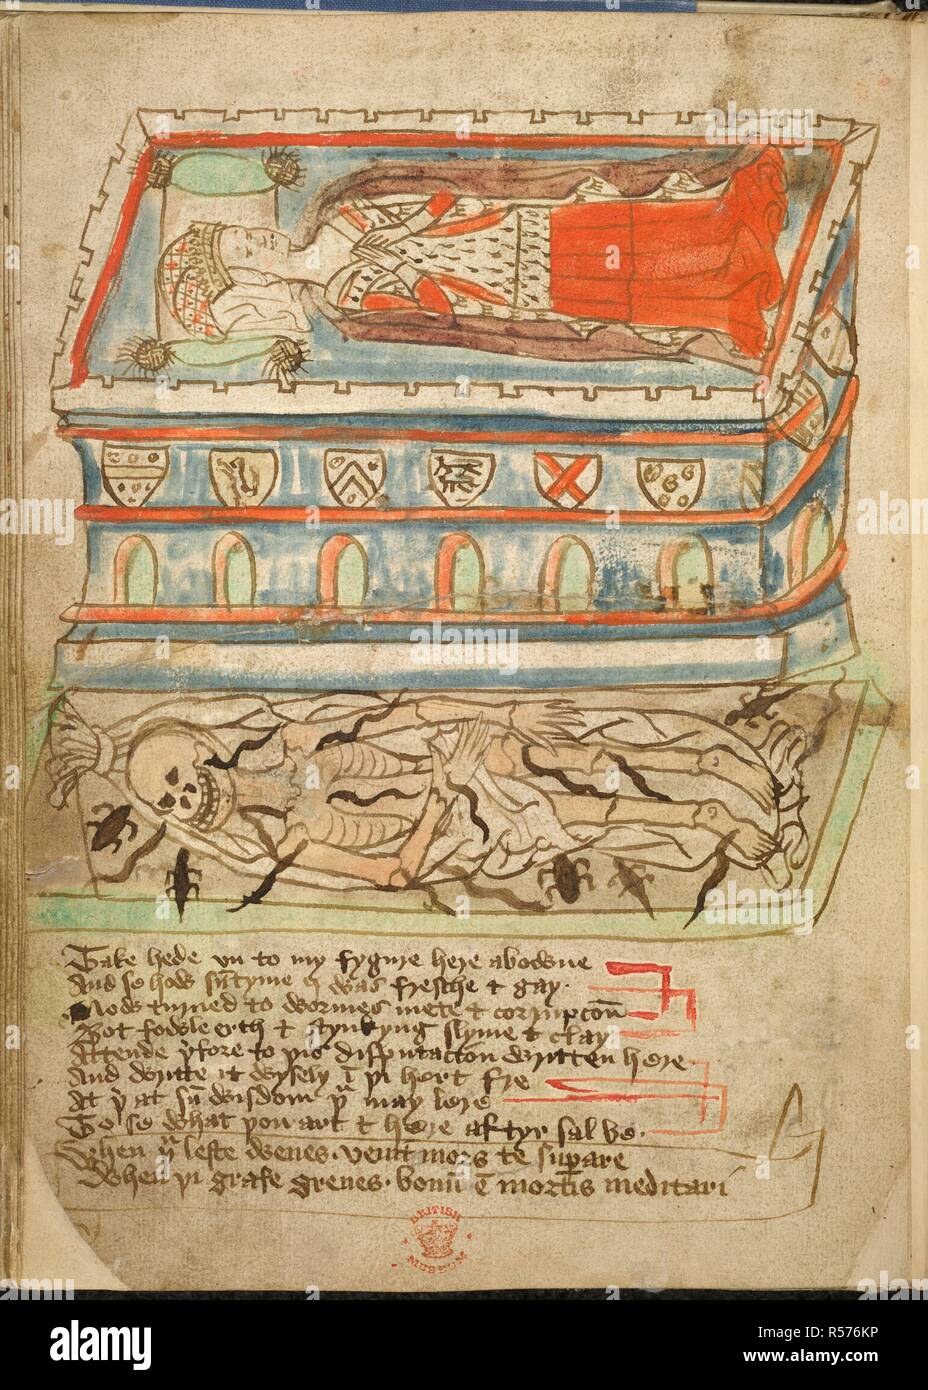 Take hede vn to my fygure here abowne
And se how sūtyme I was fressche & gay.
Now turned to wormes mete & corrupcoū
Bot fowle erth & stynkyng slyme & clay
Attende þfore to þis disputacion wrytten here
And wrytte it wysely ī þi hert fre
At þ at sū wisdom þu may lere
To se what þou art & here aftyr sal be.
When þu leste wenes. venit mors te supare
When þi grafe grenes. bonū ē mortis meditari
BRITISH
MUSEUM
a
alamy
alamy stock photo
R576KP
www.alamy.com